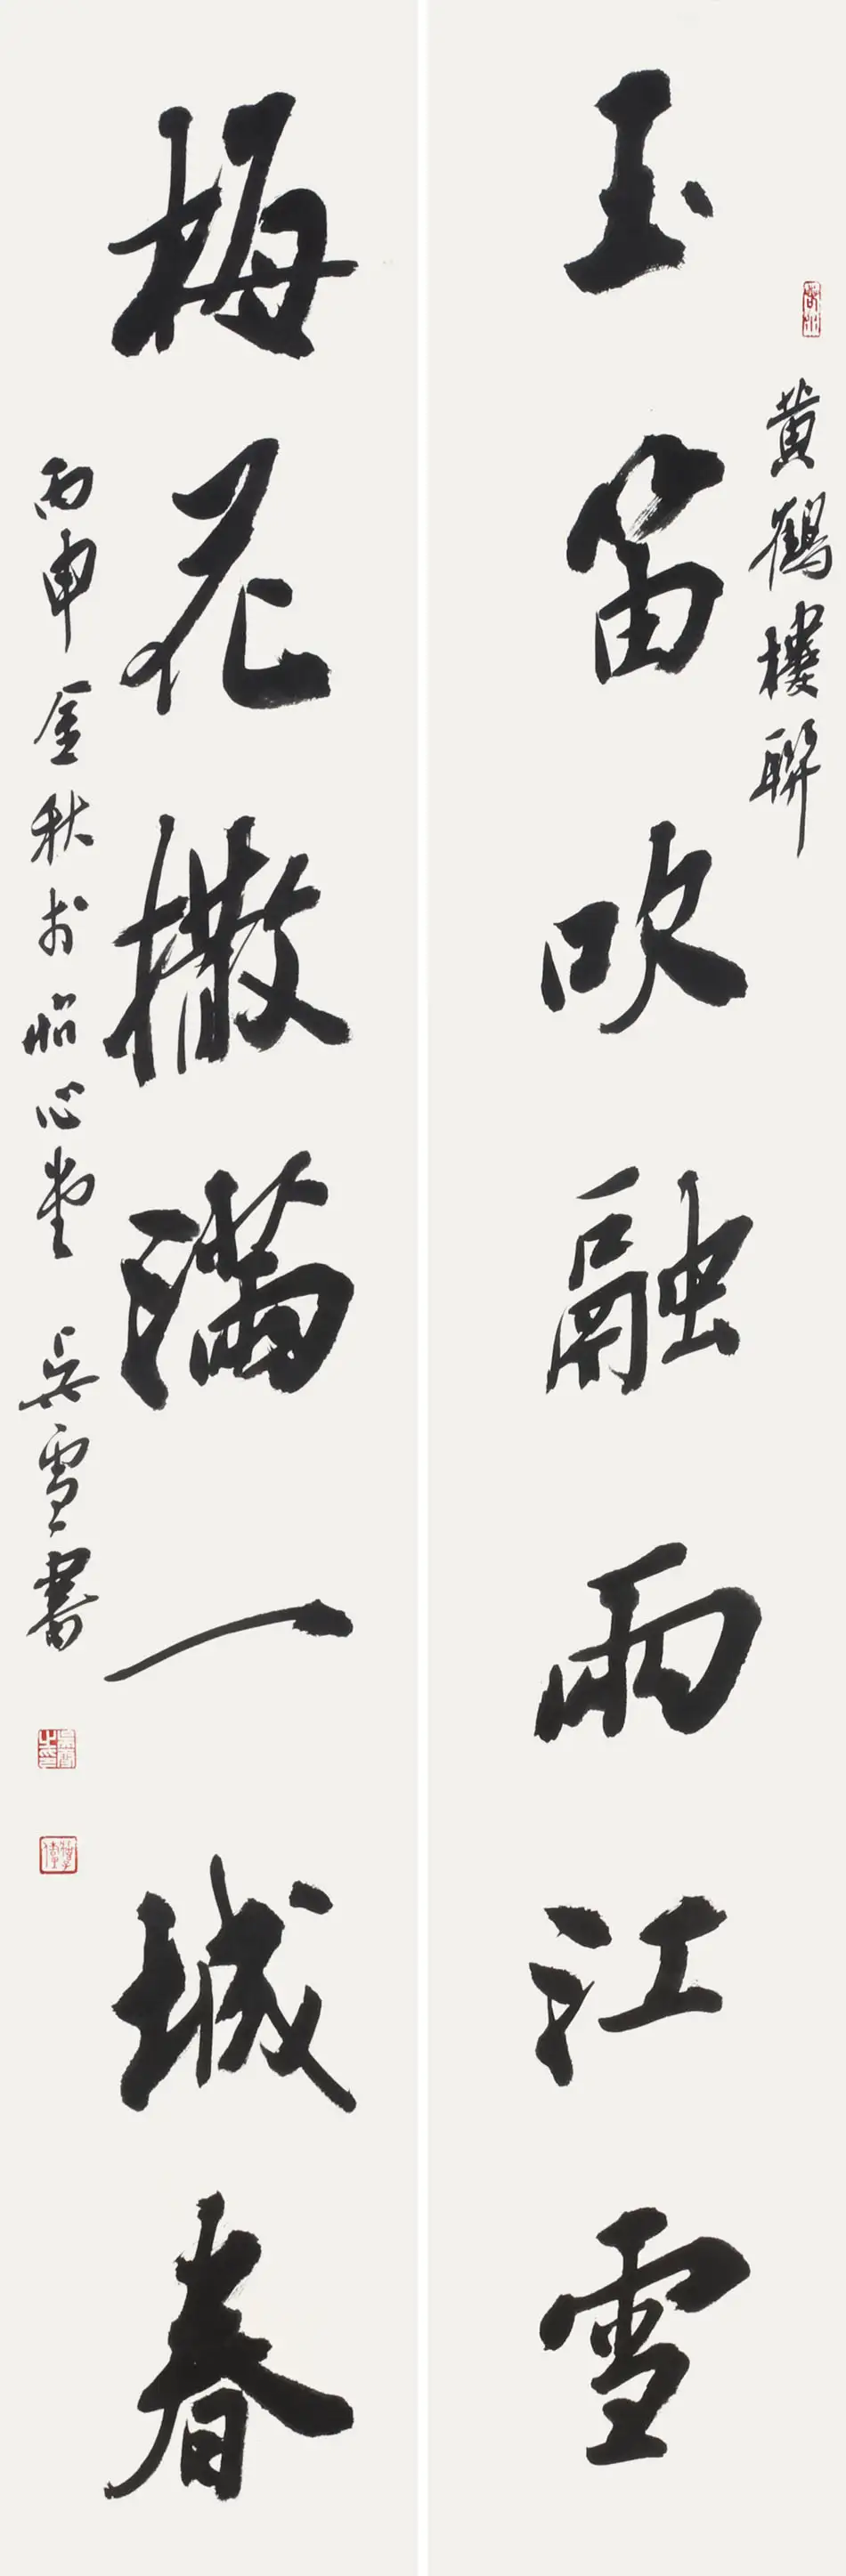 黄鶴樓聯
玉笛吹融两江雪
梅花撒滿一城春
丙申金秋於心堂 吴雪書